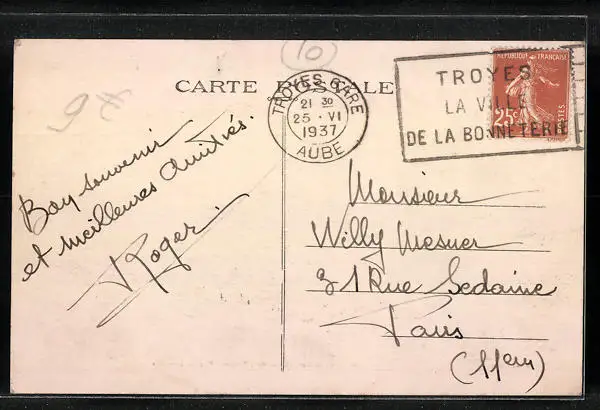 10
CARTE POSTALE
TROYES GARE
21 30
25 · VI
1937
AUBE
TROYES
LA VILLE
DE LA BONNETERIE
REPUBLIQUE FRANÇAISE
25c
9 €
Bon souvenir
et meilleures amitiés.
Roger.
Monsieur
Willy Mesner
31 Rue Sedaine
Paris
(11em)